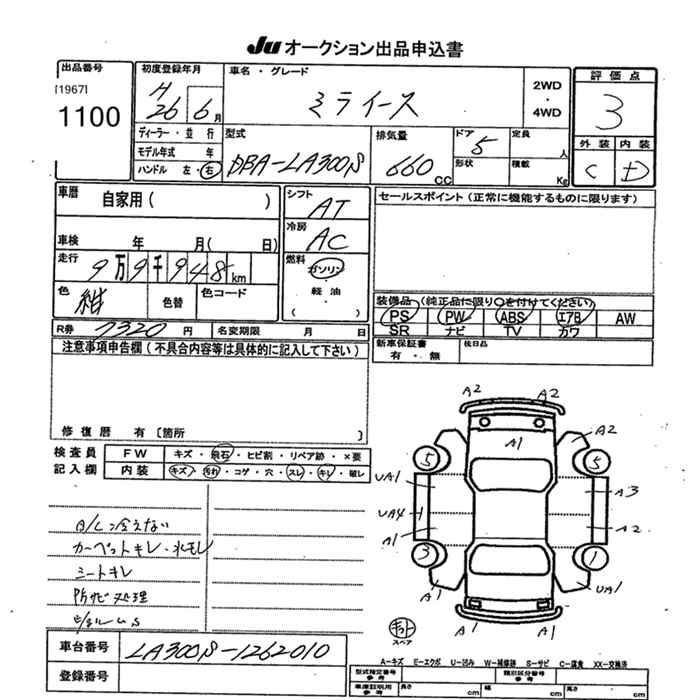 Ju オークション出品申込書
出品番号
[1967]
1100
初度登録年月
H
26 6月
車名・グレード
ミライース
2WD
・
4WD
評価点
3
外装 内装
C D
ディーラー・並行
モデル年式 年
ハンドル 左・右
型式
DBA-LA300S
排気量
660 CC
ドア 5
形状
定員 人
積載 Kg
車歴 自家用( )
車検 年 月( 日)
走行
9万9千948km
色 紺
色替
色コード
シフト
AT
冷房
AC
燃料
ガソリン
・
軽油
・
( )
セールスポイント(正常に機能するものに限ります)
装備品 (純正品に限り○を付けてください)
PS PW ABS エアB AW
SR ナビ TV カワ
R券 7320 円
名変期限 月 日
新車保証書
有・無
後日品
注意事項申告欄(不具合内容等は具体的に記入して下さい)
修復歴 有 〔箇所 〕
検査員
記入欄
FW キズ・飛石・ヒビ割・リペア跡・×要
内装 キズ・汚れ・コゲ・穴・スレ・キレ・破レ
A/C冷えない
カーペットキレ・水モレ
シートキレ
防サビ処理
A2 A2
A1
A2
5 5
UA1
A3
UA4 1
A2
A1
3 1
A1
UA1
A1 A1
スペア
A-キズ E-エクボ U-凹み W-補修跡 S-サビ C-腐食 XX-交換済
車台番号 LA300S-1262010
登録番号
型式指定番号
参考
類別区分番号
参考
車庫証明用
参考
長さ cm
幅 cm
高さ cm